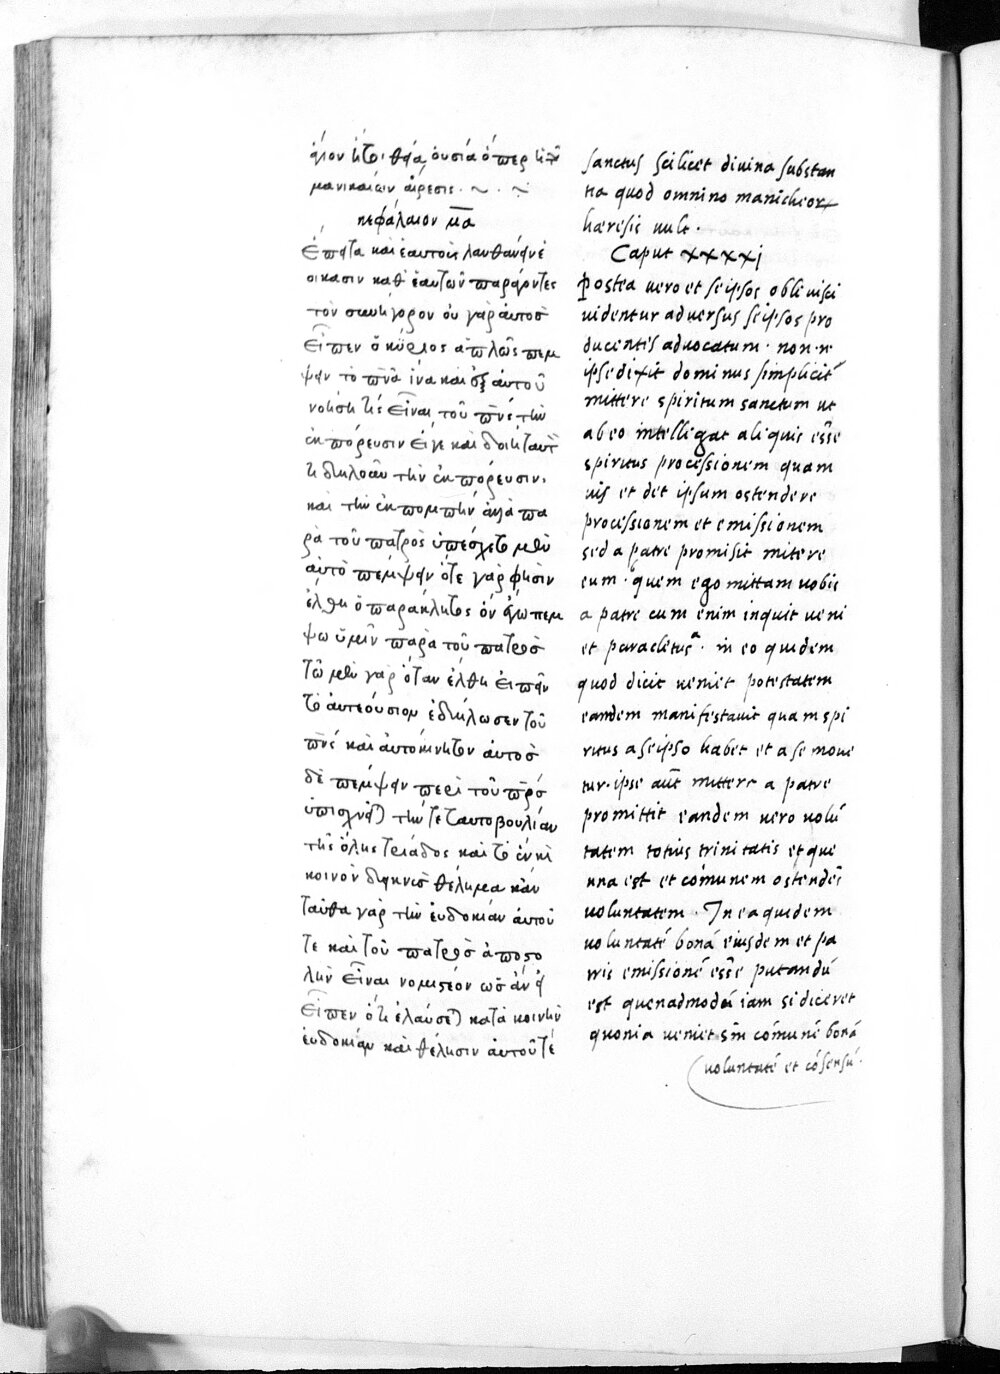 ἅγιον ἤτοι θεία οὐσία ὅπερ ἡ τῶν
μανιχαίων αἵρεσις · ~ · ~
κεφάλαιον μα
ἔπειτα καὶ ἑαυτοὺς λανθάνειν ἐ
οίκασιν καθ ἑαυτῶν παράγοντες
τὸν συνήγορον οὐ γὰρ αὐτὸσ
εἶπεν ὁ κύριος ἁπλῶς πεμ
ψειν τὸ πνα ἵνα καὶ ἐξ αὐτοῦ
νοήσῃ τίς εἶναι τοῦ πνς τὴν
ἐκπόρευσιν εἴγε καὶ
δηλοῦν τὴν ἐκπόρευσιν,
καὶ τὴν ἐκπομπὴν ἀλλὰ πα
ρὰ τοῦ πατρὸς ὑπέσχετο μὲν
αὐτὸ πέμψειν ὅτε γάρ φησιν
ἔλθῃ ὁ παράκλητος ὃν ἐγὼ πεμ
ψω ὑμῖν παρὰ τοῦ πατρὸσ
τῶ μὲν γὰρ ὅταν ἔλθῃ εἰπεῖν
τὸ αὐτεξούσιον ἐδήλωσεν τοῦ
πνς καὶ αὐτοκίνητον αὐτὸσ
δὲ πέμψειν περὶ τοῦ πρσ
ὑπισχνεῖται τὴν τε ταυτοβουλίαν
τῆς ὅλης τριάδος καὶ τὸ ἓν καὶ
κοινὸν δεικνὺσ θέλημα κἀν
ταῦθα γὰρ τὴν εὐδοκίαν αὐτοῦ
τε καὶ τοῦ πατρὸσ ἀποστο
λὴν εἶναι νομιστέον ὡσ ἂν εἰ
εἶπεν ὅτι ἐλεύσεται κατὰ κοινὴν
εὐδοκίαν καὶ θέλησιν αὐτοῦ τέ
sanctus scilicet diuina substan
tia quod omnino manicheor
haeresis uult .
Caput xxxxi
Postea uero et seipsos obliuisci
uidentur aduersus seipsos pro
ducentes aduocatum . non n
ipse dixit dominus simplicit
mittere spiritum sanctum ut
ab eo intelligat aliquis esse
spiritus processionem quam
uis et det ipsum ostendere
processionem et emissionem
sed a patre promisit mitere
eum . quem ego mittam uobis
a patre cum enim inquit ueni
et paracletus . in eo quidem
quod dicit ueniet potestatem
eandem manifestauit quam spi
ritus a seipso habet et a se moue
tur . ipse aut mittere a patre
promittit eandem uero uolu
tatem totius trinitatis et que
una est et cómunem ostendes
uoluntatem . In ea quidem
uoluntaté boná eiusdem et pa
tris emissioné esse putandú
est quenadmodú iam si diceret
quonia ueniet sm cómuné boná
uoluntaté et cósensú .